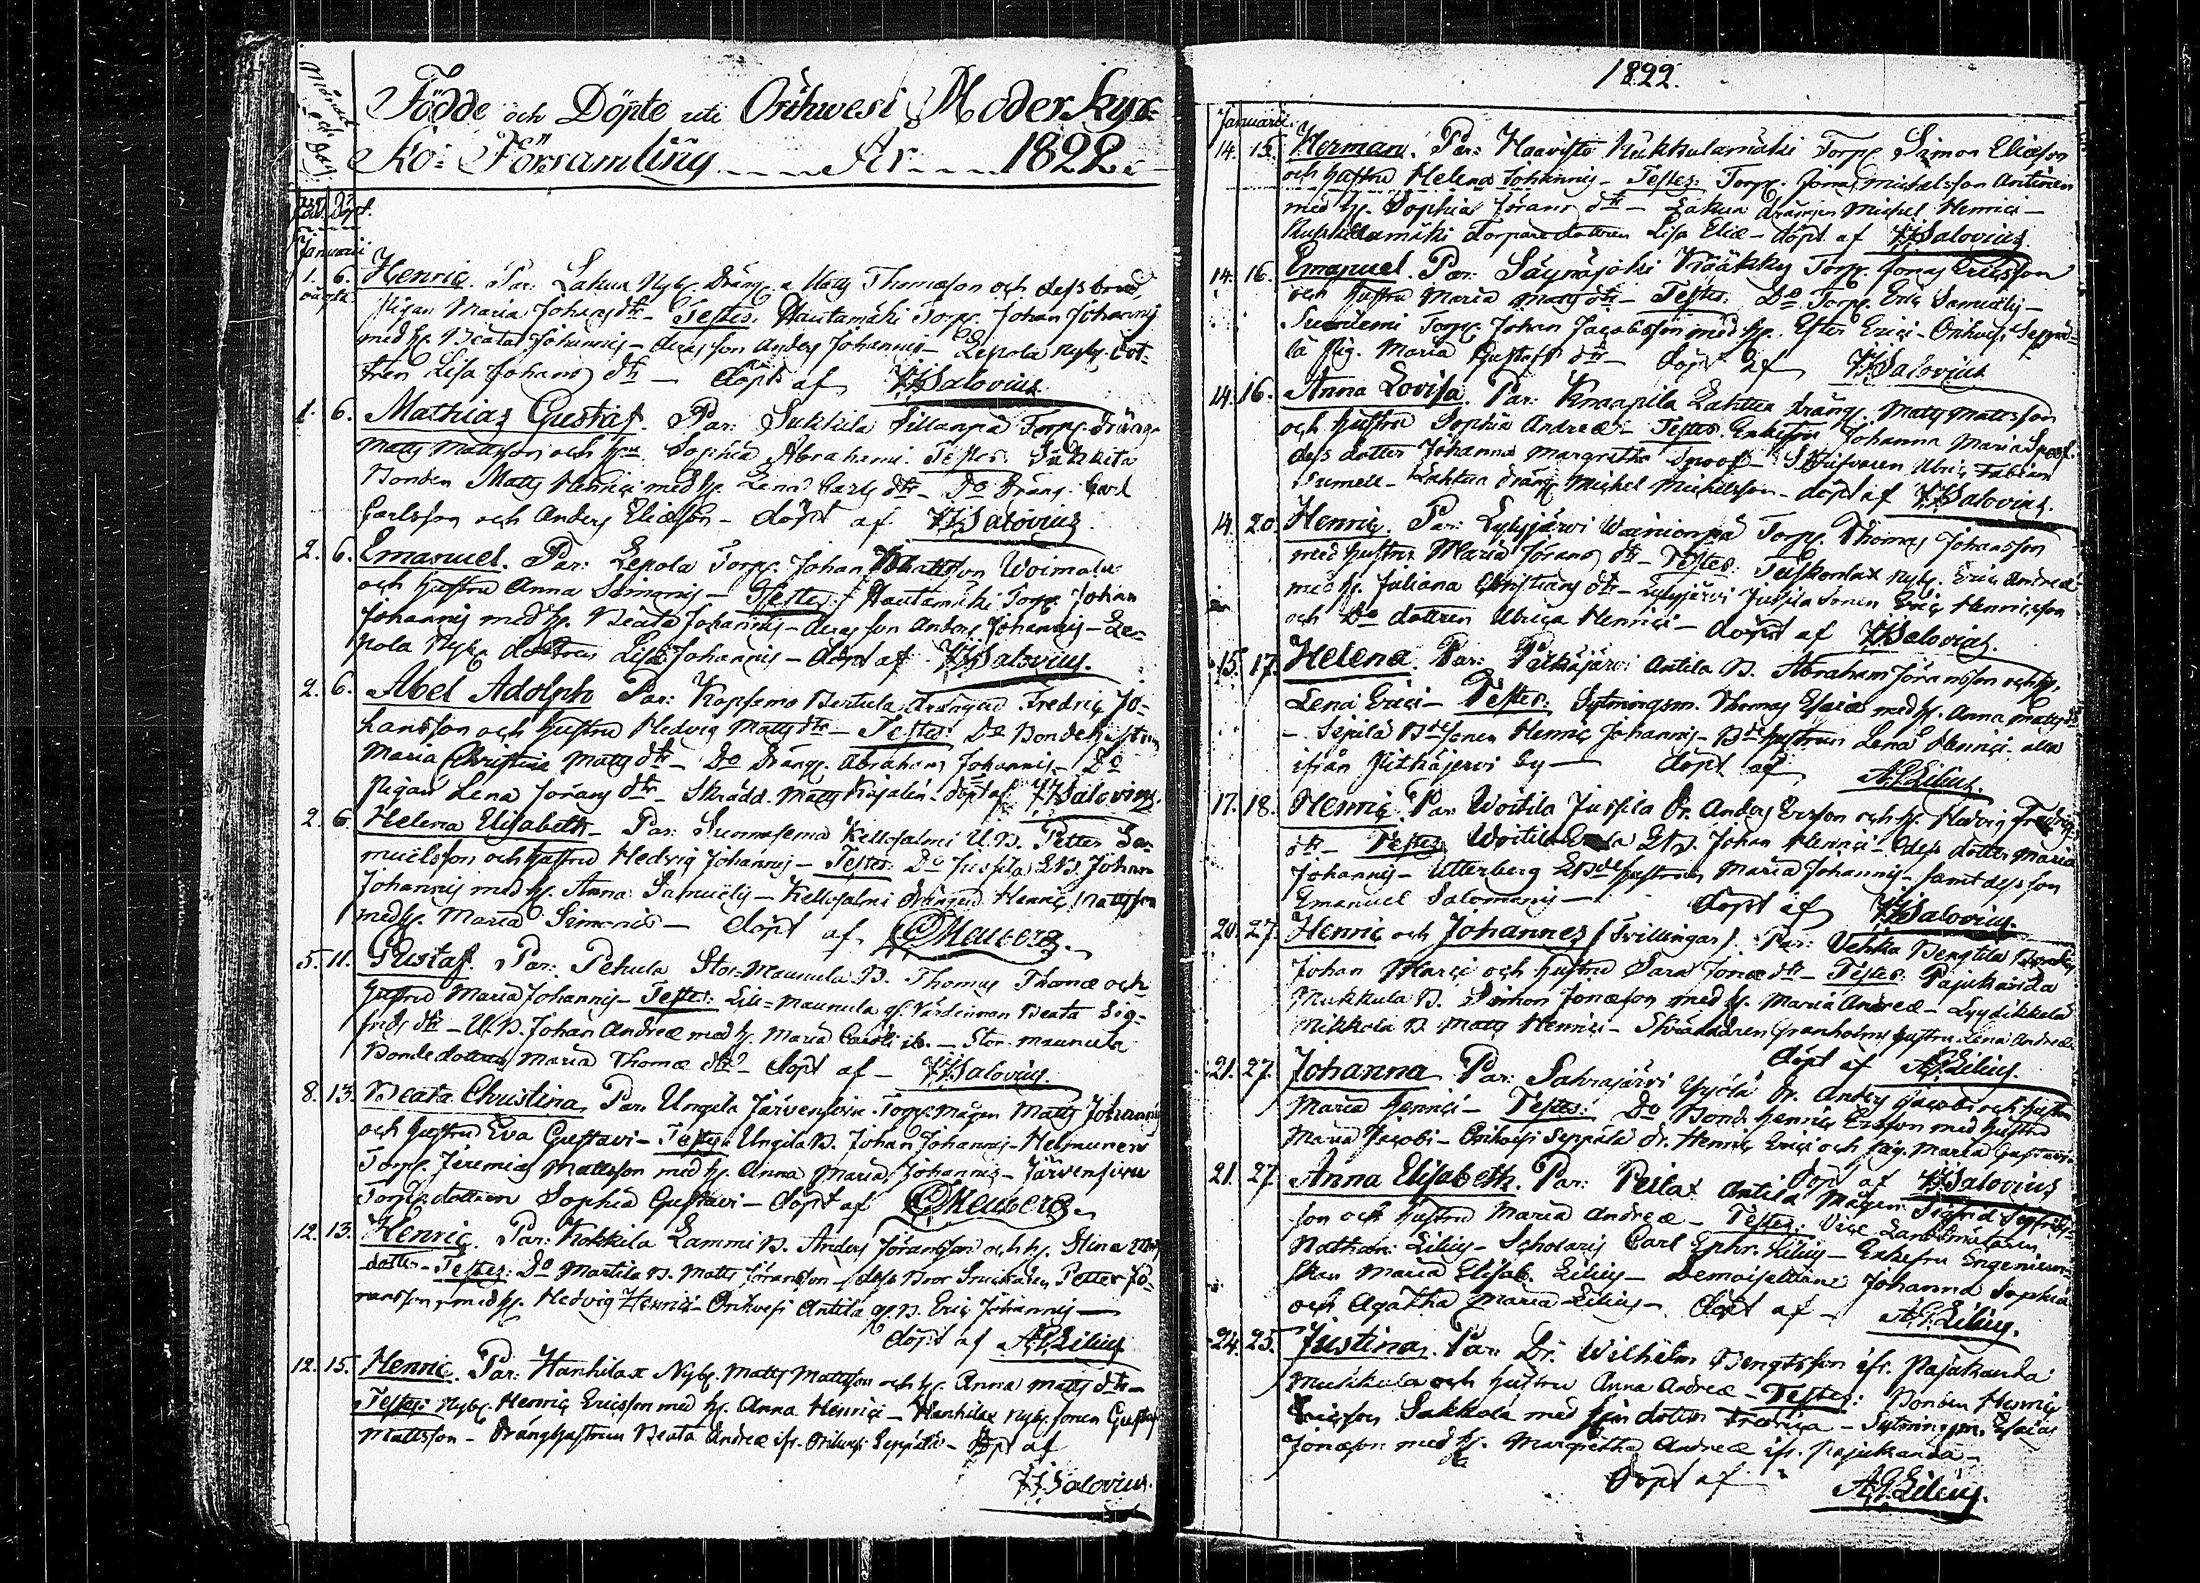 Månad och dag
Födde och Döpte uti Orihwesi Moder kyr=
ko= Församling ---- År ---- 1822.
född döpt.
Januarii
1. 6. Henric. Par: Lakua Nyb. Dräng. Matts Thomasson och dess brud,
oägta pigan Maria Johans dtr – Testes: Hautamäki Torp. Johan Johannis
med h. Beata Johannis – deras son Anders Johannis – Lepola Nyby. dot-
tren Lisa Johans dtr — döpt af J.J.Salovius.
1. 6. Mathias Gustaf. Par: Sukkila Sillanpä Torp. Dräng
Matts Mattsson och hu Sophia Abrahami. Testes: Sukkila
Bonden Matts Henrici med h. Lena Carls dtr – Do Dräng. Carl
Carlsson och Anders Eliasson – döpt af J.J.Salovius.
2. 6. Emanuel. Par: Lepola Torp. Johan Mattsson Woimala
och hustru Anna Simonis – Testes: Hautamäki Torp. Johan
Johannis med h. Beata Johannis – deras son Anders Johannis – Le=
pola Nyby. dottren Lisa Johannis – döpt af J.J.Salovius.
2. 6. Abel Adolph Par: Kopsamo Bertula drängen Fredric Jo=
hansson och hustru Hedvig Matts dtr – Testes: Do Bondehustrun
Maria Christina Matts dtr – Do Dräng. Abraham Johannis – Do
Pigan Lena Jörans dtr – Skrädd. Matts Kajalén – döpt af J.J.Salovius.
2. 6. Helena Elisabeth – Par: Suomasema Kellosalmi U.B. Petter Sa=
muelsson och hustru Hedvig Johannis – Testes: Do Jussila L.B. Johan
Johannis med h. Anna Samuelis – Kellosalmi Drängen Henric Mattsson
med h. Maria Simonis – döpt af C.Meuberg.
5. 11. Gustaf. Par: Pehula Stor-Maunula B. Thomas Thomæ och
hustru Maria Johannis – Testes: Lill=Maunula gl. Värdinnan Beata Sig=
frids dtr – U.B. Johan Andreæ med h. Maria Caroli ib. – Stor-maunula
Bonde dottren Maria Thomæ dtr – döpt af – J.J.Salovius.
8. 13. Beata Christina. Par. Ungila Järvensivu Torp. mågen Matts Johannis
och hustru Eva Gustavi – Testes: Ungila B. Johan Johannis – Helmunen
Torp. Jeremias Mattsson med h. Anna Maria Johannis – Järvensivu
Torp. dottren Sophia Gustavi – döpt af C.Meuberg.
12. 13. Henric. Par: Kokkila Lammi B. Anders Jöransson och h. Stina
dotter – Testes: Do Martila B. Matts Jöransson – dess Bror Snickaren Petter Jö=
ransson, med h. Hedvig Henrici – Orihvesi Antila gl. B. Eric Johannis —
döpt af A.G.Lilius
12. 15. Henric. Par: Hanhilax Nyby. Matts Mattsson och h. Anna Matts dtr –
Testes: Nyby. Henric Ericsson med h. Anna Henrici – Hanhilax Nyby. sonen Gustaf
Mattsson – Dränghustrun Beata Andreæ ifr. Orihvesi Seppälä – döpt af
J.J.Salovius.
1822.
Januarii.
14. 15. Herman. Par: Haavisto Kukkulamäki Torp. Simon Eliæson
och hustru Helena Johannis – Testes: Torp. Jonas Michelsson Antinen
med h. Sophia Jörans dtr – Lakua drängen Michel Henrici –
Kukkulamäki Torpare dottren Lisa Eliæ – döpt af J.J.Salovius.
14. 16. Emanuel. Par: Säynäjoki Krääkky Torp. Jonas Ericsson
och hustru Maria Matts dtr – Testes: Do Torp. Eric Samuelis –
Suoniemi Torp. Johan Jacobsson med h. Ester Erici – Orihvesi Seppä=
lä Pig. Maria Gustafs dtr – döpt af J.J.Salovius
14. 16. Anna Lovisa. Par: Knaapila Lahtua dräng. Matts Mattsson
och hustru Sophia Andreæ – Testes: Enkefru Johanna Maria Spoof
dess dotter Johanna Margretha Spoof – Skrifvaren Ulric Fabian
Sumell – Lahtua dräng Michel Michelsson – döpt af J.J.Salovius.
14. 20. Henric. Par: Lylyjärvi Wainionpä Torp. Thomas Johansson
med hustru Maria Jörans dtr – Testes: Talskonlax Nyby. Eric Andreæ
med h. Juliana Christians dtr – Lylyjärvi Jussila Sonen Eric Henricsson
och Do dottren Ulrica Henrici – döpt af J.J.Salovius.
15. 17. Helena. Par: Pitkäjärvi Antila B. Abraham Jöransson och h.
Lena Erici – Testes: Sytningsm. Thomas Esaiæ med h. Anna Matts dtr
– Sipilä Bde Sonen Henric Johannis – Bde hustrun Lena Henrici alla
ifrån Pitkäjervi by — döpt af A.G.Lilius.
17. 18. Henric. Par. Woitila Jussila Dr. Anders Ersson och h. Hedvig Fredrics
dtr – Testes: Woitila L.B. Johan Henrici – dess dotter Maria
Johannis – Utterberg L.Bde hustrun Maria Johannis – samt dess son
Emanuel Salomonis – döpt af J.J.Salovius.
20. 27. Henric och Johannes (Tvillingar). Par: Vehka Bengtila
Johan Marci och hustru Sara Jonæ dtr – Testes: Pajukanda
Mukkula B. Simon Jonæson med h. Maria Andreæ – Lyydikkälä
Mikkola B. Matts Henrici – Skräddaren Granholms hustru Lena Andreæ
döpt af A.G.Lilius.
21. 27. Johanna Par: Sahrajärvi Yrjölä Dr. Anders Jacobi och hustru
Maria Henrici – Testes: Do Bond. Henric Ersson med hustru
Maria Jacobi – Orihvesi Seppälä Dr. Henric Erici och Pig. Maria Gustavi
döpt af J.J.Salovius
21. 27. Anna Elisabeth. Par: Peilax Antila Mågen Sigfrid Sigfrids=
son och hustru Maria Andreæ – Testes: Vice Landtmätaren
Nathan: Lilius – Scholaris Carl Ephr. Lilius – Enkefru Engenieur=
skan Maria Elisab. Lilius – Demoisellerne Johanna Sophia
och Agatha Maria Lilius – döpt af – A.G.Lilius.
24. 25. Justina. Par: Dr. Wilhelm Bengtsson ifr. Pajukanda
Mukkula och hustru Anna Andreæ – Testes: Bonden Henric
Ericsson Sakkola med sin dotter Fredrica – Sytningsm. Esaias
Jonæson med h. Margretha Andreæ ifr. Pajukanda –
döpt af A.G.Lilius.